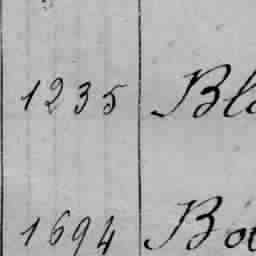 1235 Bl
1694 Bo